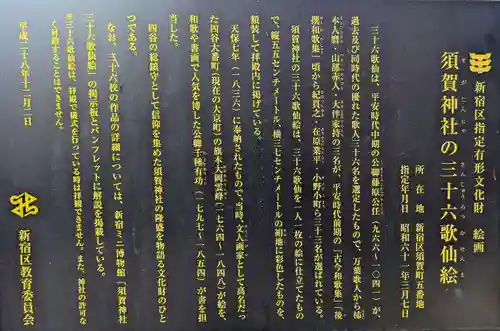 新宿区指定有形文化財 絵画
須賀神社の三十六歌仙絵
すがじんじゃ さんじゅうろっかせんえ
所在地 新宿区須賀町五番地
指定年月日 昭和六十一年三月七日
三十六歌仙は、平安時代中期の公卿藤原公任(九六六~一〇四一)が、
過去及び同時代の優れた歌人三十六名を選定したもので、万葉歌人から柿
本人麿・山部赤人・大伴家持の三名が、平安時代前期の「古今和歌集」「後
撰和歌集」頃から紀貫之・在原業平・小野小町ら三十三名が選ばれている。
須賀神社の三十六歌仙絵は、三十六歌仙を一人一枚の絵に仕立てたもの
で、縦五五センチメートル、横三七センチメートルの絹地に彩色したものを、
額装して拝殿内に掲げている。
天保七年(一八三六)に奉納されたもので、当時、文人画家として高名だっ
た四谷大番町(現在の大京町)の旗本大岡雲峰(一七六四~一八四八)が絵を、
和歌や書画で人気を博した公卿千種有功(一七九七~一八五四)が書を担
当した。
四谷の総鎮守として信仰を集めた須賀神社の隆盛を物語る文化財のひと
つである。
なお、三十六枚の作品の詳細については、新宿ミニ博物館「須賀神社
三十六歌仙絵」の掲示板とパンフレットに解説を掲載している。
※三十六歌仙絵は、拝殿で儀式を行っている時は拝観できません。また、神社の許可な
くören撮影することはできません。
平成二十八年十二月二日
新宿区教育委員会